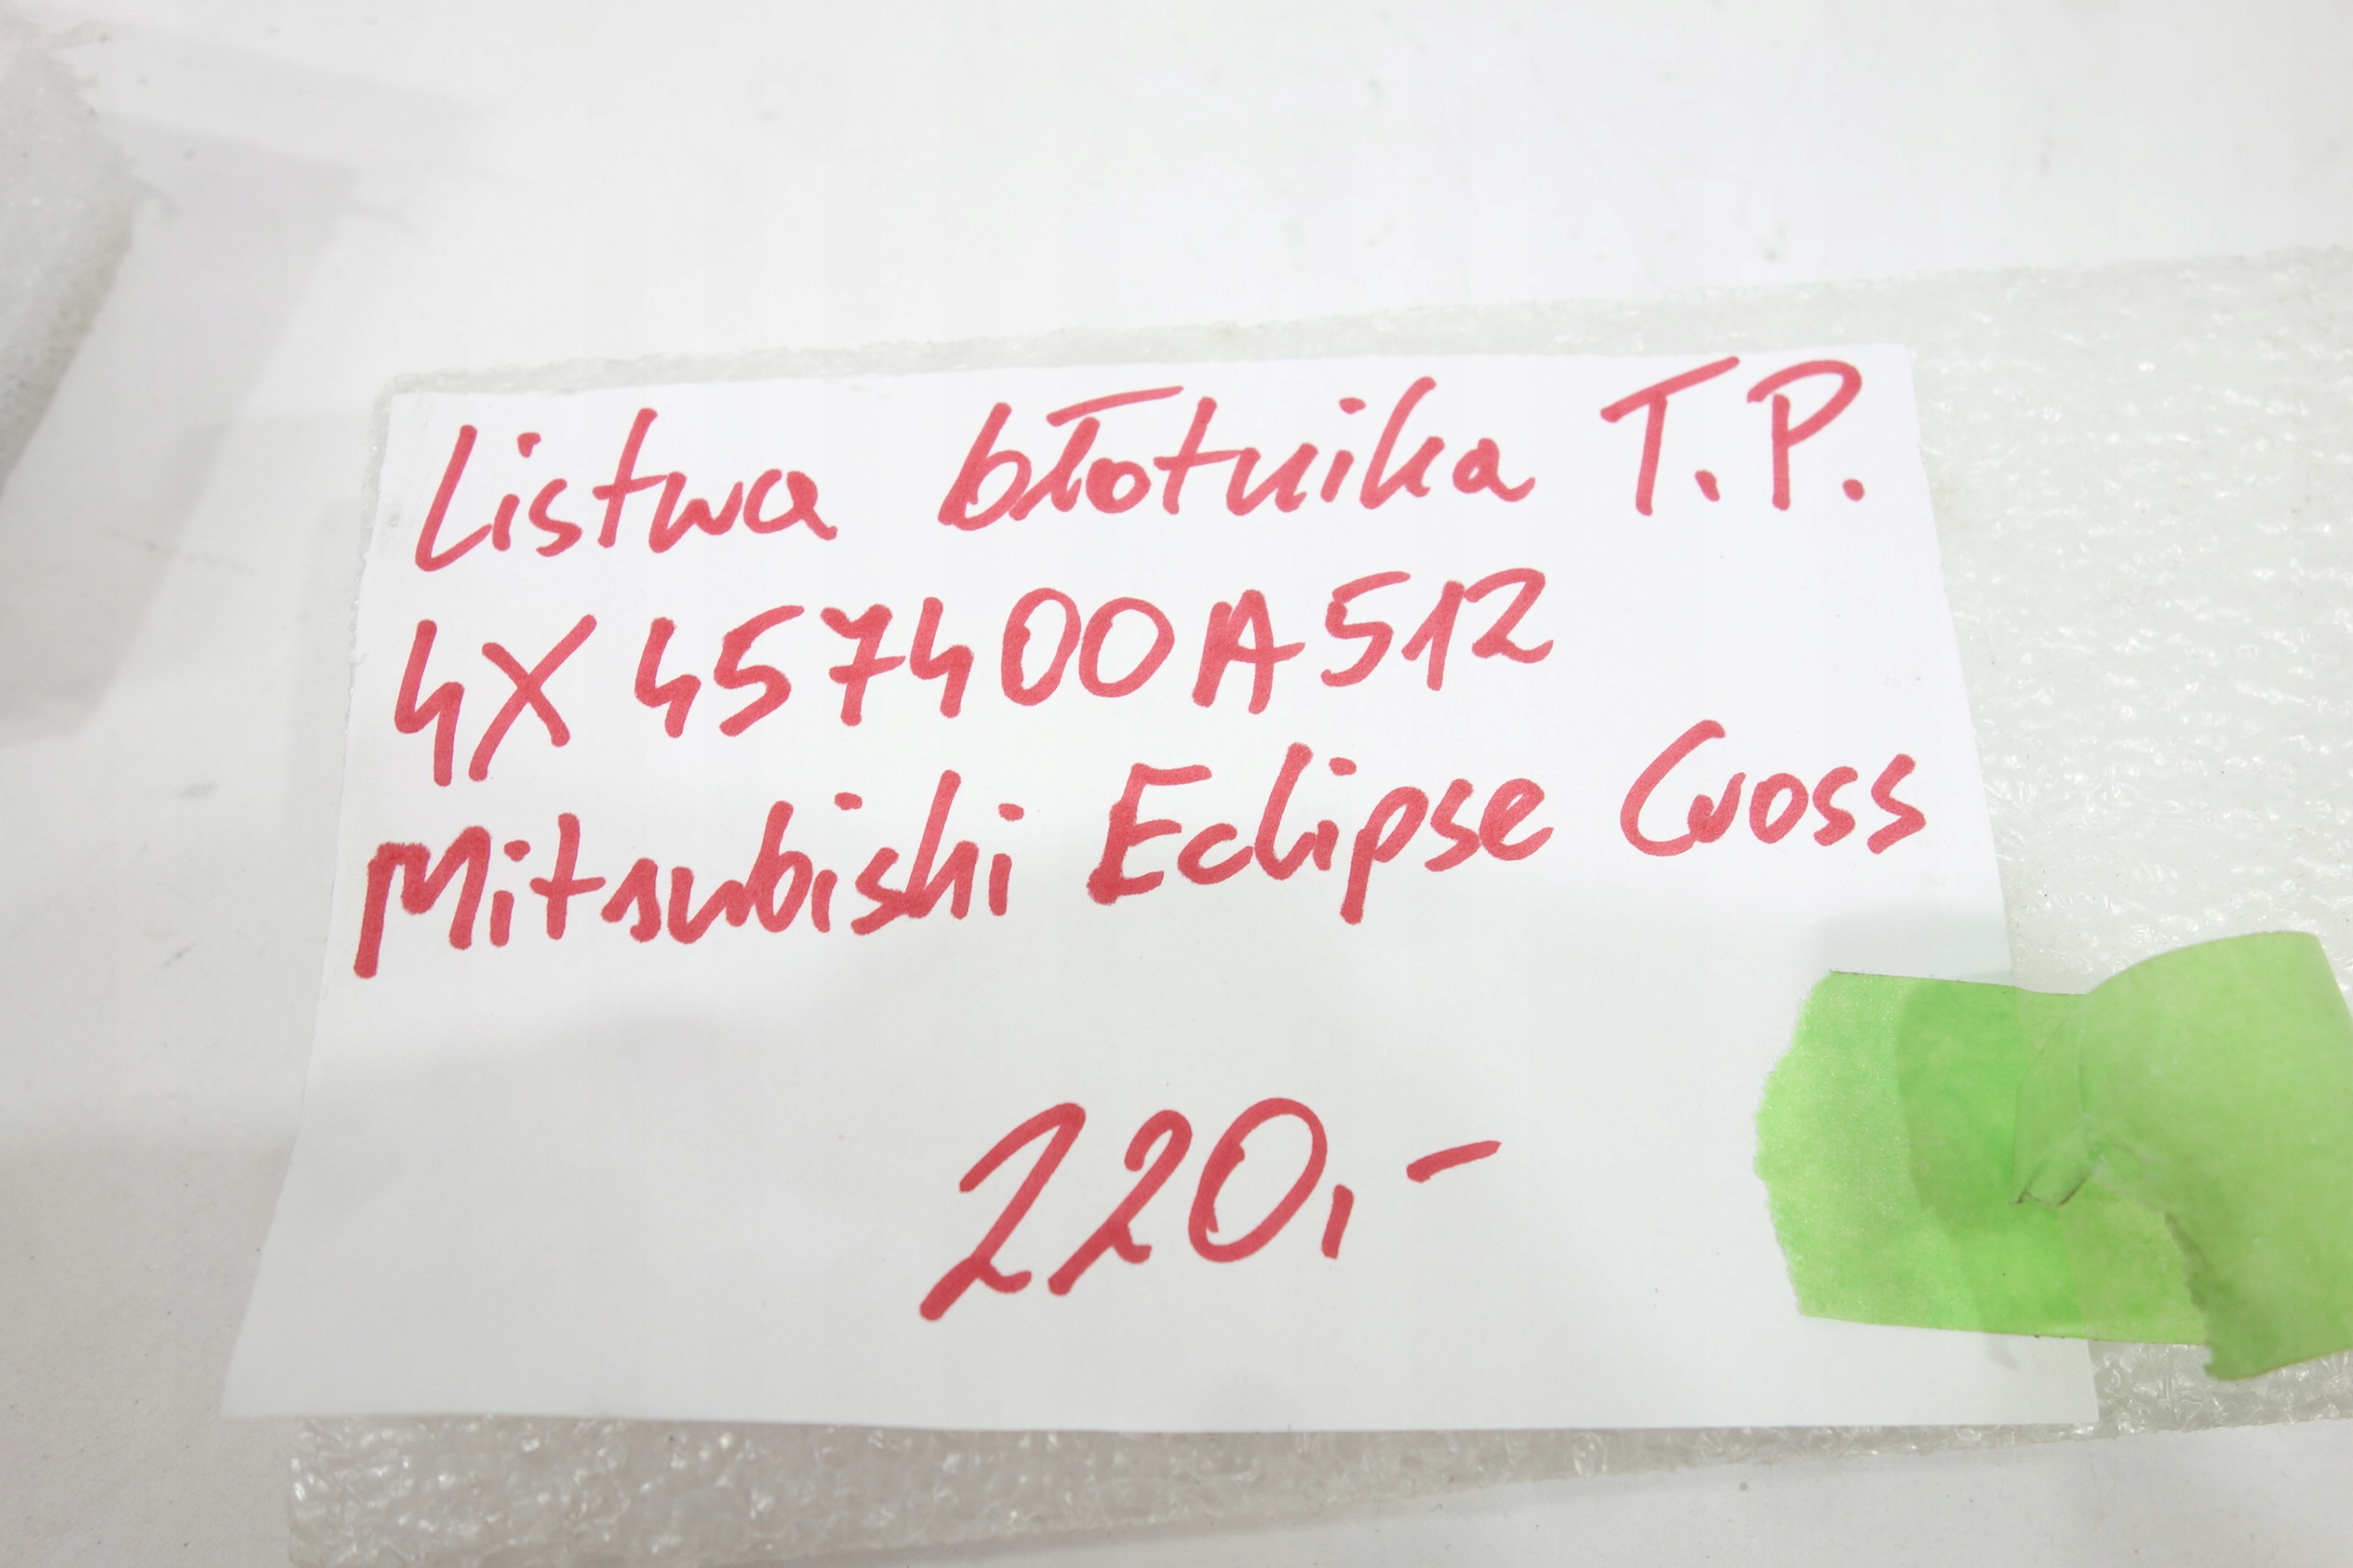 Listwa błotnika T.P.
4X 457400A512
Mitsubishi Eclipse Cross
220,-